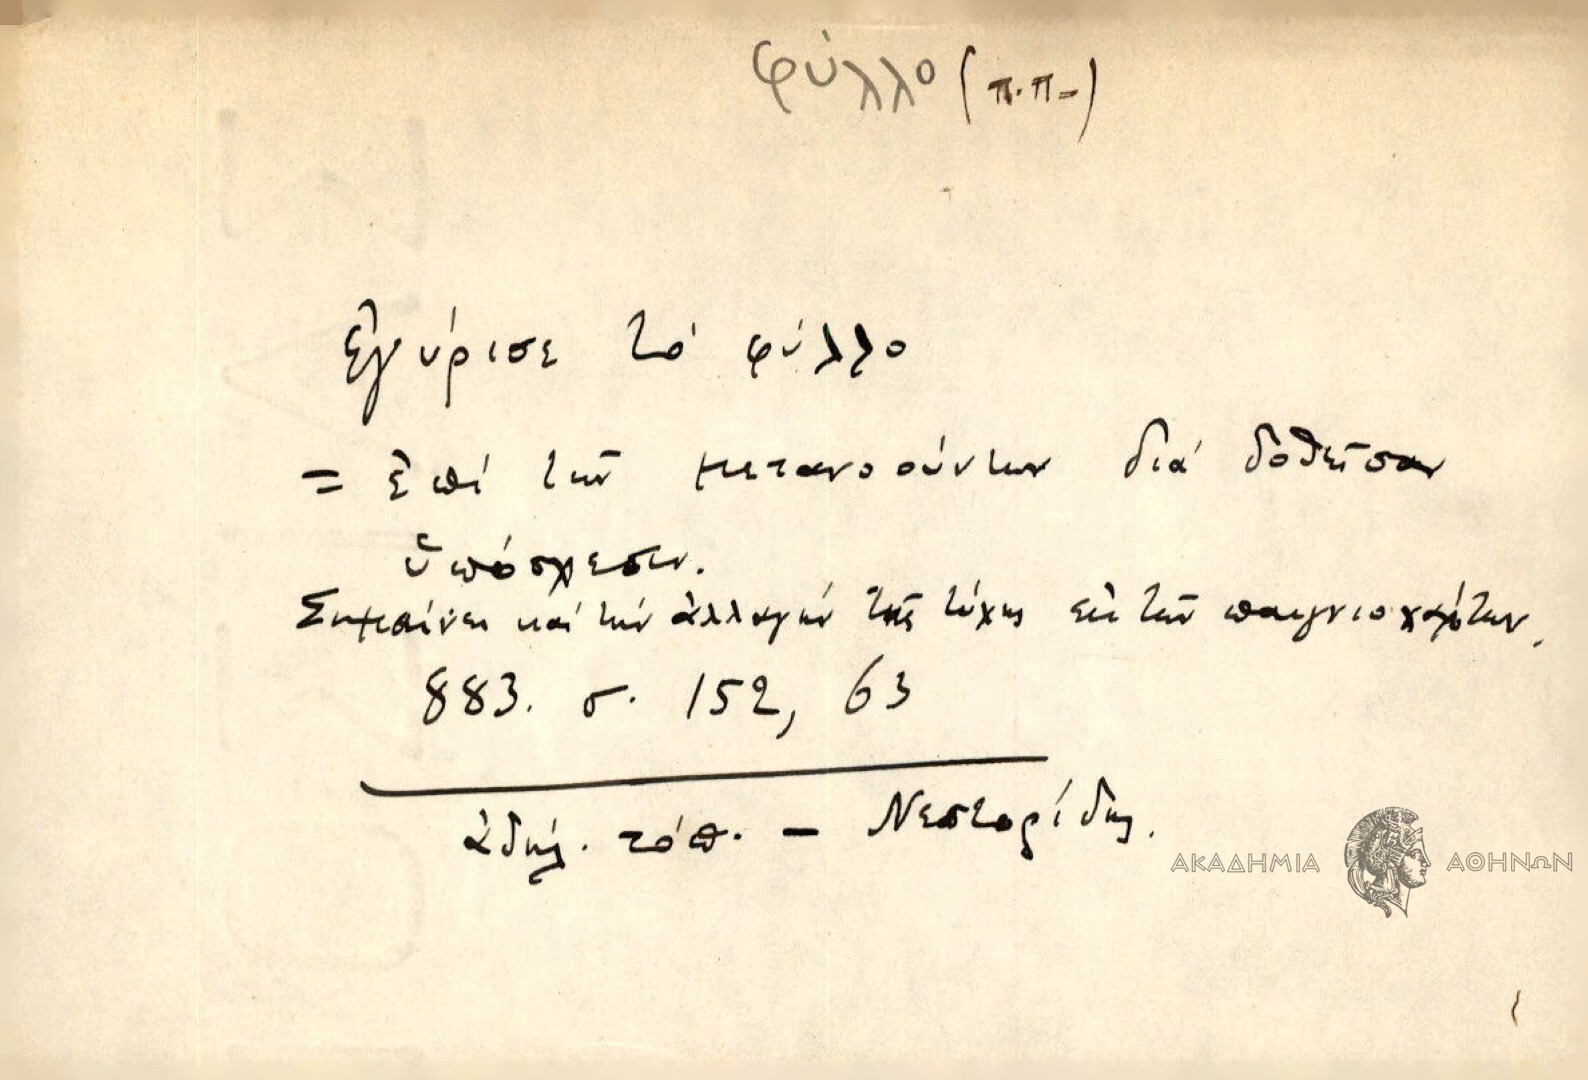 φύλλο (π.π=)
Ἐγύρισε τό φύλλο
= Ἐπί τῶν μετανοούντων διά δοθεῖσαν
ὑπόσχεσιν.
Σημαίνει καί τήν ἀλλαγήν τῆς τύχης ἐπί τῶν παιγνιοχάρτων.
883. σ. 152, 63
ἀδήλ. τόπ. - Νεστορίδης.
ΑΚΑΔΗΜΙΑ ΑΘΗΝΩΝ